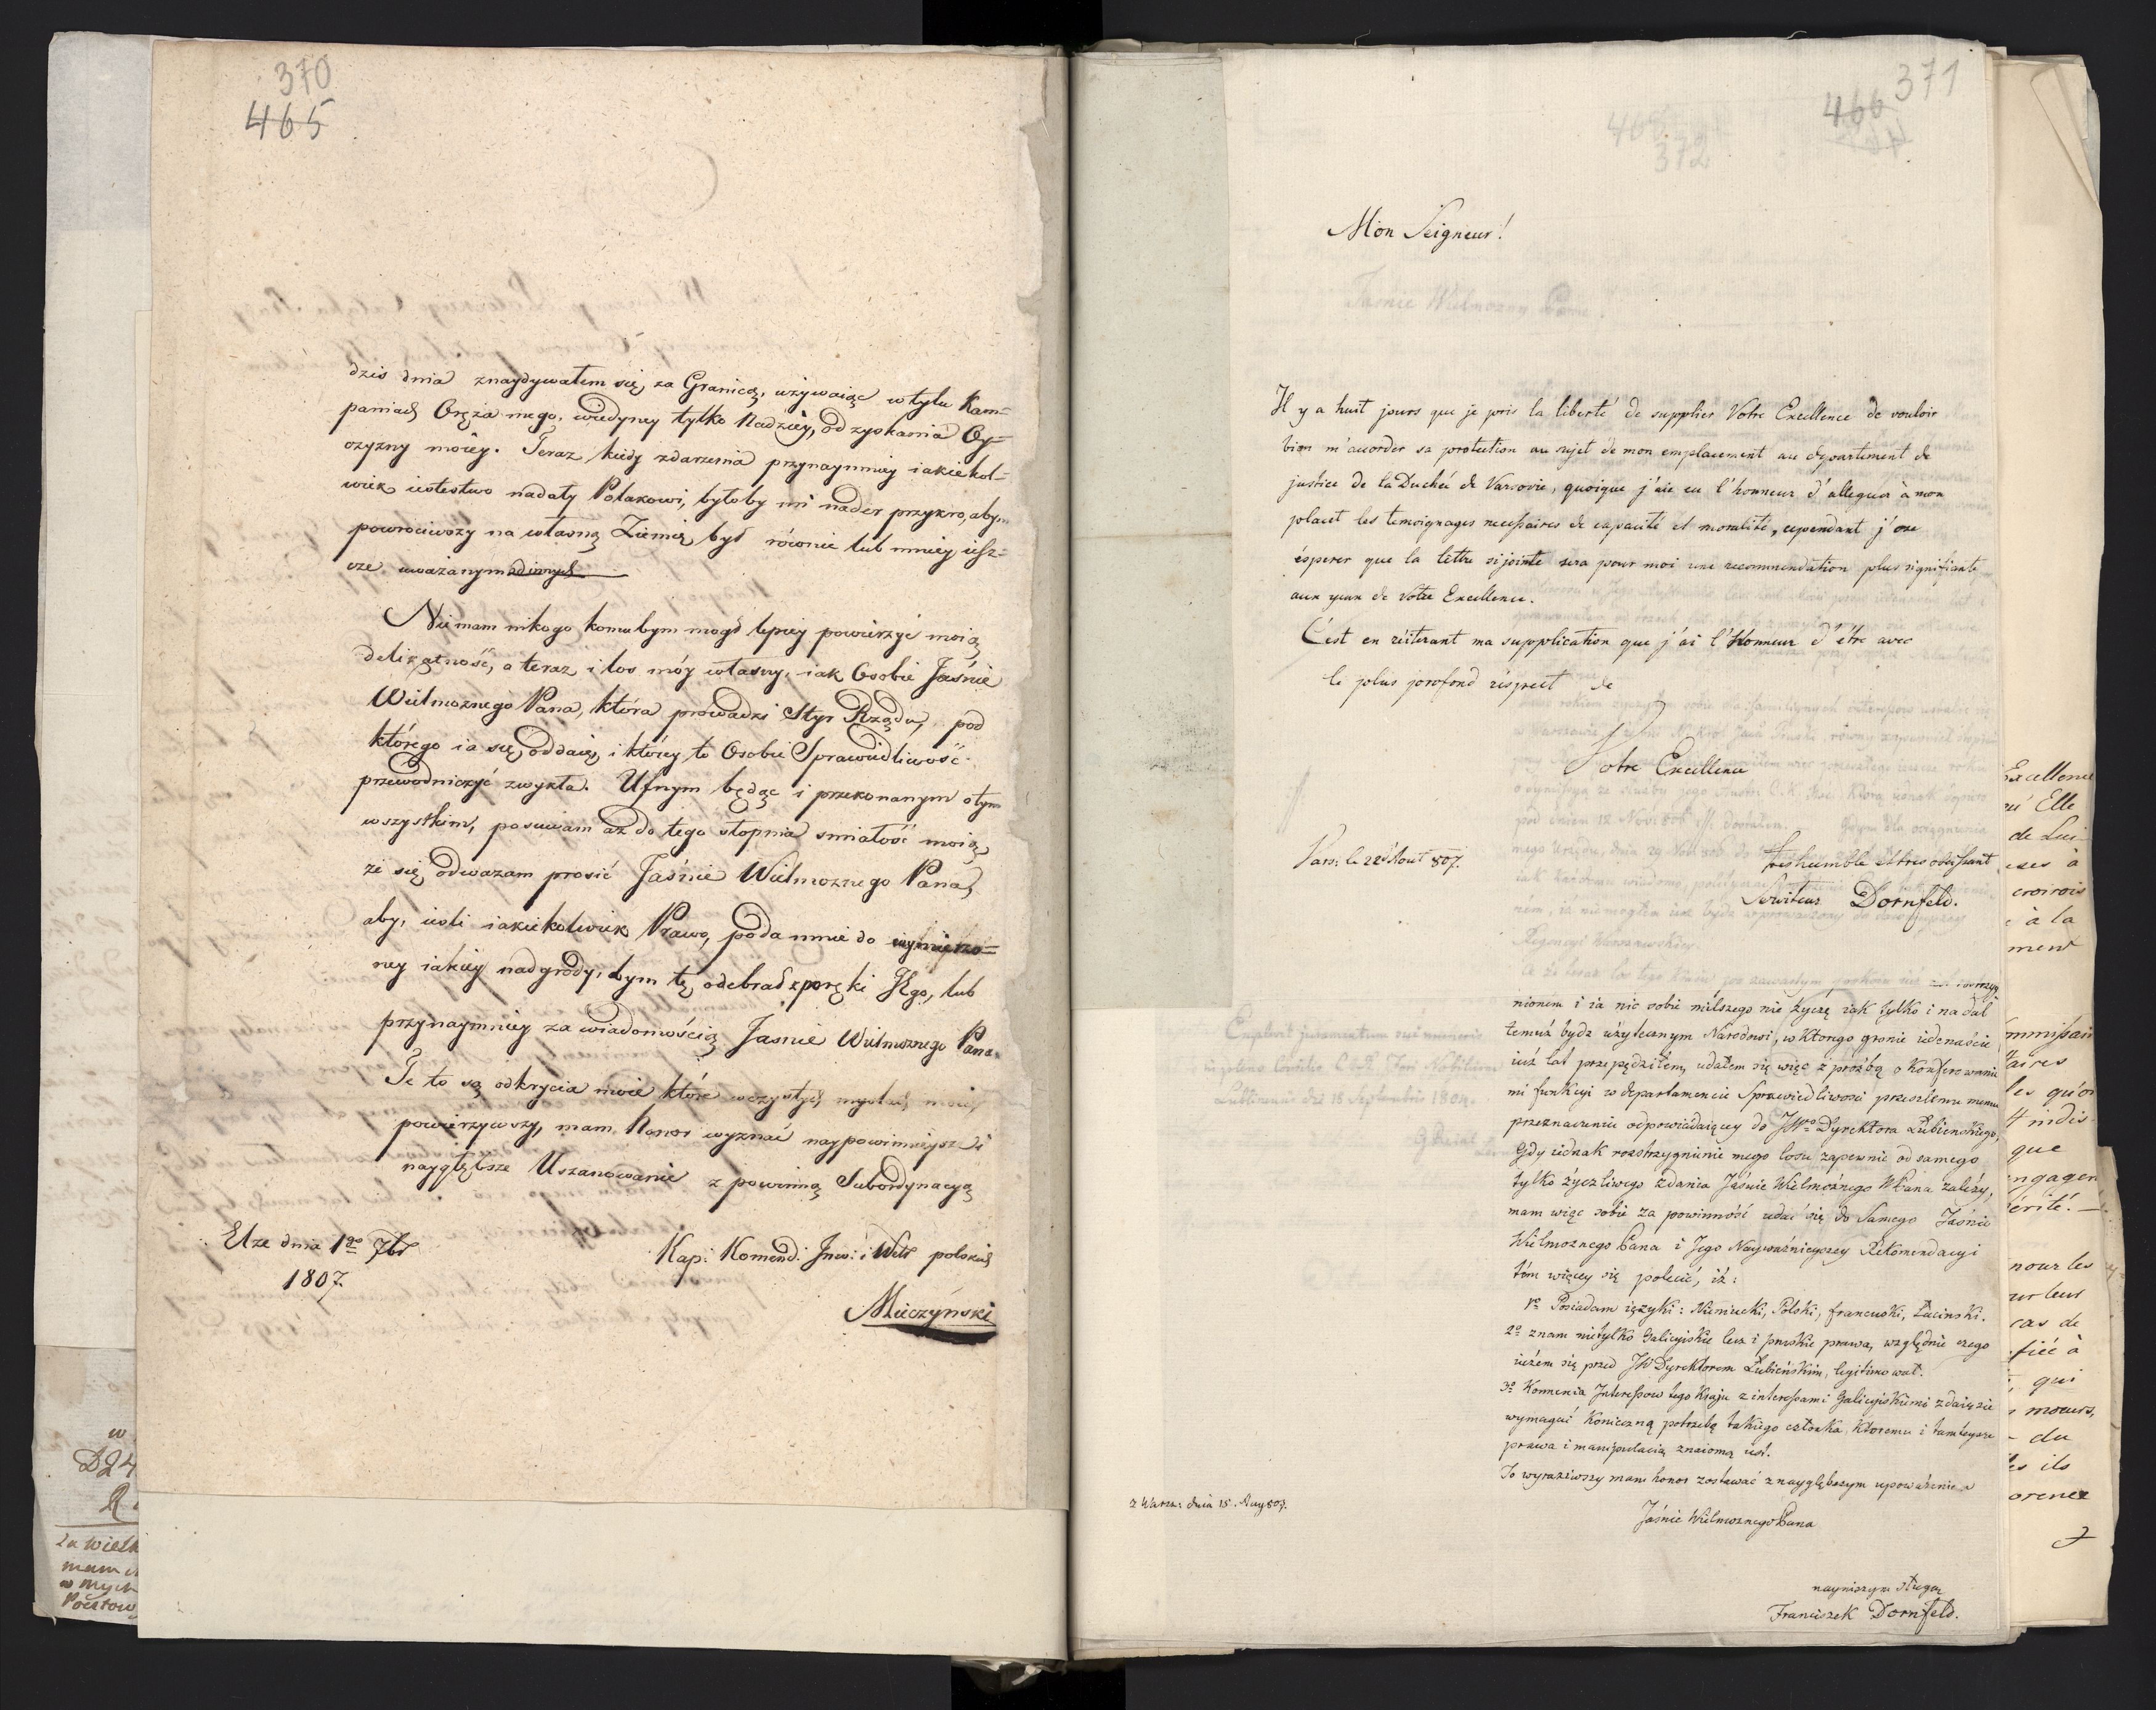 370
465
dzis dnia znaydywałem się za Granicą, używaiąc w tylu Kam=
paniach Oręża mego, w iedyney tylko Nadziey, odzyskania Oy=
czyzny moiey. Teraz, kiedy zdarzenia przynaymniey iakiekol=
wiek iestestwo nadały Polakowi, byłoby mi nader przykro, abym
powrociwszy na własną Ziemię, był równie lub mniey iesz=
cze uważanym od innych
Nie mam nikogo komubym mogł lepiey powierzyć moią
delikatność, a teraz i los móy własny, iak Osobie Jaśnie
Wielmożnego Pana, która prowadzi Styr Rządu, pod
którego ia się oddaię, i którey to Osobie Sprawiedliwość
przewodniczyć zwykła. Ufnym będąc i przekonanym o tym
wszystkim, posuwam aż do tego stopnia smiałość moią,
że się odważam prosić Jaśnie Wielmożnego Pana,
aby, iesli iakiekolwiek Prawo, poda mnie do wymierzo=
ney iakiey nadgrody, bym tę odebrał z poręki Jego, lub
przynaymniey za wiadomością Jasnie Wielmożnego Pana.
Te to są odkrycia moie które w czystych myslach moich
powierzywszy, mam Honor wyznać naypowinnieysze i
naygłębsze Uszanowanie z powinną Subordynacyą
Elze dnia 1go 7br
1807.
Kap: Komend: Inw: i Wetr polskich
Mieczyński
w
D24
za wielk
mam
w mych
Pocztow
371
466
468
372
Mon Seigneur!
Il y a huit jours que je pris la liberté de supplier Votre Excellence de vouloir
bien m'accorder sa protection au sujet de mon emplacement au departement de
justice de la Duché de Varsovie, quoique j'aie eu l'honneur d'alleguer à mon
placet les temoignages necessaires de capacité et moralité, cependant j'ose
ésperer que la lettre sijointe sera pour moi une recommendation plus signifiante
aux yeux de Votre Excellence.
C'est en réiterant ma supplication que j'ai l'Honneur d'être avec
le plus profond réspect de
Votre Excellence
Vars: le 22 d'Aout 807.
treshumble et tres obeissant
Serviteur Dornfeld.
nionem i ia nic sobie milszego nie życzę iak tylko i nadal
temuż bydz użytecznym Narodowi, w którego gronie iedenaście
iuż lat przepędziłem, udałem się więc z proźbą o Konferowanie
mi funkcyi w departamencie Sprawiedliwosci przeszłemu memu
przeznaczeniu odpowiadaiącey do JWgo Dyrektora Łubienskiego,
Gdy iednak rozstrzygnienie mego losu zapewnie od samego
tylko życzliwego zdania Jaśnie Wielmożnego WPana zależy,
mam więc sobie za powinność udać się do Samego Jaśnie
Wielmożnego Pana i Jego Nayważnieyszey Rekomendacyi
tém więcey się polecić, iż:
1o Posiadam ięzyki: Niemiecki, Polski, francuski, Łacinski.
2o znam nietylko Galicyiskie lecz i pruskie prawa, względnie czego
iużem się przed JW Dyrektorem Łubieńskim, legitimował.
3o Konnexia Interessow tego Kraju z interessami Galicyiskiemi zdaię się
wymagać Konieczną potrzebę takiego członka, Któremu i tamteysze
prawa i manipulacia znaiomą iest.
To wyraziwszy mam honor zostawać z naygłębszym upoważeniem
Jaśnie Wielmożnego Pana
z Warsz: dnia 15. Aug 807.
nayniższym sługą
Franciszek Dornfeld.
Excellence
Elle
de Lui
à
croirois
à la
ment
ommissair
aires
les qu'on
indis
que
engagen
érité. —
pour les
ur leur
cas de
fiée à
qui
moeurs,
du
ils